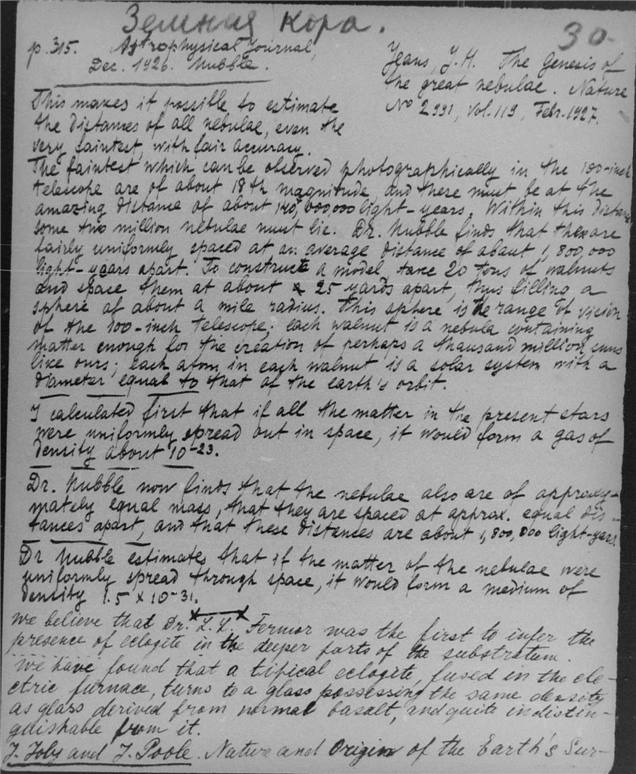 Земная кора.
30
p. 315. Astrophysical Journal,
Dec. 1926. Hubble.
Jeans, J.H. The Genesis of
the great nebulae. Nature
No 2991, Vol. 119, Feb. 1927.
This makes it possible to estimate
the distances of all nebulae, even the
very faintest, with fair accuracy.
The faintest which can be observed photographically in the 100-inch
telescope are of about 18th magnitude, and there must be at the
amazing distance of about 140,000,000 light-years. Within this distance
some two million nebulae must lie. Dr. Hubble finds that they are
fairly uniformly spaced at an average distance of about 1,800,000
light-years apart. To construct a model, take 20 tons of walnuts
and space them at about 25 yards apart, thus filling a
sphere of about a mile radius. This sphere is the range of vision
of the 100-inch telescope; each walnut is a nebula containing
matter enough for the creation of perhaps a thousand million suns
like ours; each atom in each walnut is a solar system with a
diameter equal to that of the earth's orbit.
I calculated first that if all the matter in the present stars
were uniformly spread out in space, it would form a gas of
density about 10-23.
Dr. Hubble now finds that the nebulae also are of approxy-
mately equal mass, that they are spaced at approx. equal dis-
tances apart, and that these distances are about 1,800,000 light-years.
Dr Hubble estimates that if the matter of the nebulae were
uniformly spread through space, it would form a medium of
density 1.5 x 10-31.
We believe that Dr. L.L. Fermor was the first to infer the
presence of eclogite in the deeper parts of the substratum.
We have found that a tipical eclogite, fused in the ele-
ctric furnace, turns to a glass possessing the same density
as glass derived from normal basalt, and quite indistin-
guishable from it.
J. Joly and J. Poole. Nature and Origin of the Earth's Sur-